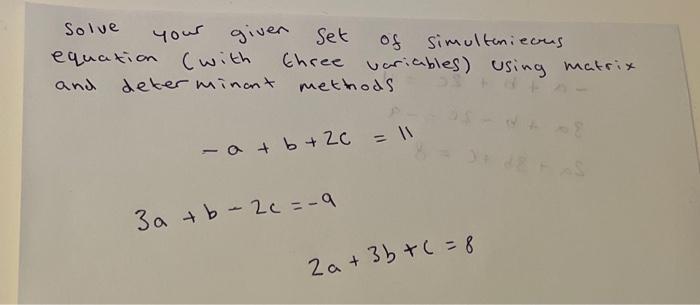 Solve your given set of simultenieous
equation (with three variables) using matrix
and determinant methods
- a + b + 2c = 11
3a + b - 2c = -9
2a + 3b + c = 8